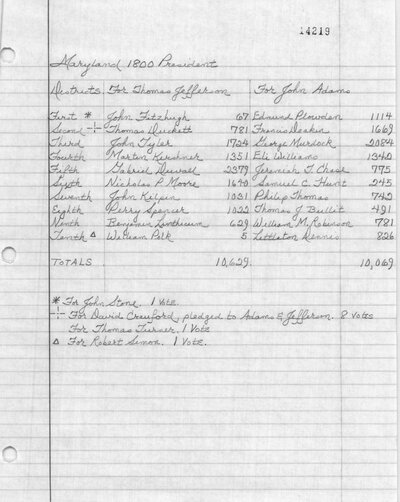 14219
Maryland 1800 President
Districts For Thomas Jefferson For John Adams
First * John Fitzhugh 67 Edmund Plowden 1114
Second -¦- Thomas Duckett 781 Francis Deakin 1669
Third John Tyler 1724 George Murdock 2084
Fourth Martin Kershner 1351 Eli Williams 1340
Fifth Gabriel Duvall 2379 Jeremiah T. Chase 775
Sixth Nicholas R. Moore 1640 Samuel C. Hunt 245
Seventh John Gilpin 1031 Philip Thomas 742
Eighth Perry Spencer 1022 Thomas J. Bullit 491
Ninth Benjamin Linthicum 629 William M. Robinson 781
Tenth Δ William Polk 5 Littleton Dennis 826
TOTALS 10,629. 10,069
* For John Stone. 1 Vote.
-¦- For David Crawford, pledged to Adams & Jefferson. 8 votes
For Thomas Turner. 1 Vote
Δ For Robert Simon. 1 Vote.